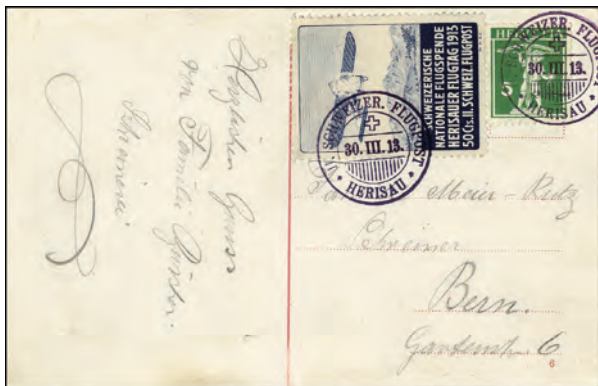 Herzlichen Gruss
von Familie
Schreinerei
SCHWEIZERISCHE
NATIONALE FLUGSPENDE
HERISAUER FLUGTAG 1913
50 Cts. II. SCHWEIZ. FLUGPOST
SCHWEIZER. FLUGPOST
30.III.13.
HERISAU
HE
5
FLUGPOST
30.III.13.
HERISAU
Meier - Rutz
Schreiner
Bern.
Gartenstr. 6
6